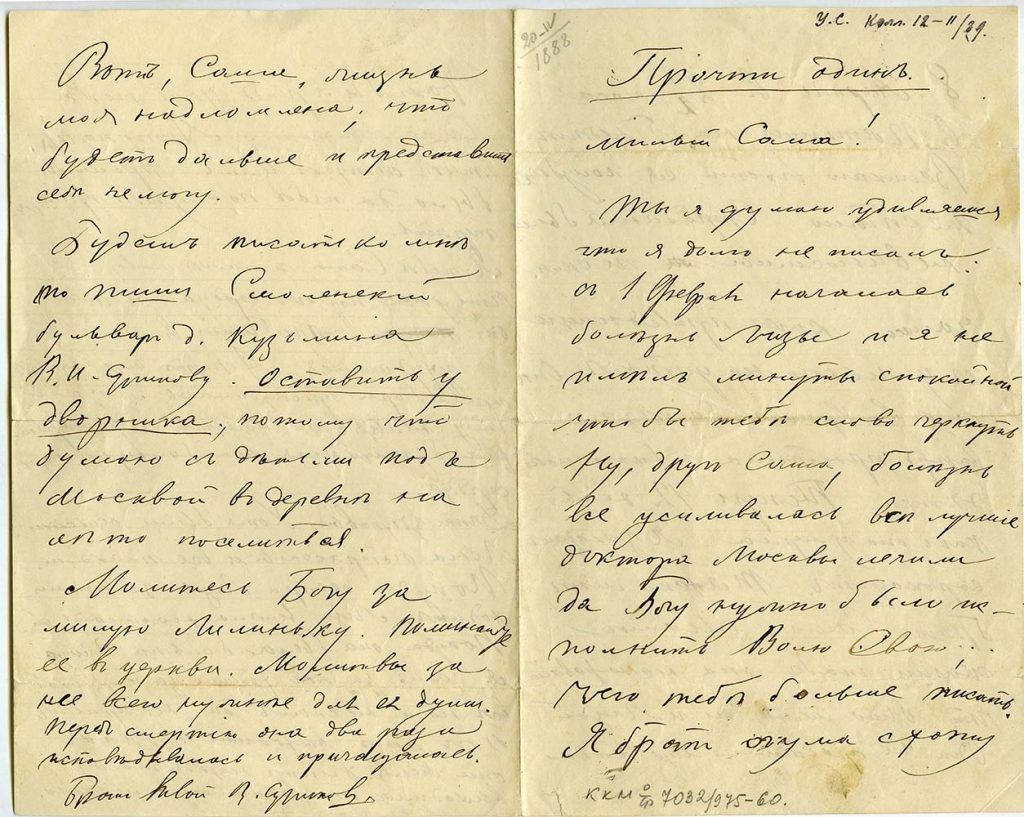 Вотъ, Саша, жизнь
моя надломлена; что
будетъ дальше и представить
себѣ не могу.
Будешь писать ко мнѣ
то пиши Смоленскій
бульваръ д. Кузьмина
В. И. Сурикову. Оставить у
дворника, потому что
думаю съ дѣтьми подъ
Москвой въ деревнѣ на
лѣто поселиться.
Молитесь Богу за
милую Лилиньку. Поминайте
ее въ церкви. Молитвы за
нее всего нужнѣе для ея души.
Передъ смертію она два раза
исповѣдывалась и причащалась.
Братъ твой В. Суриковъ.
20-IV
1888
У.С. Колл. 12-11/29.
Прочти одинъ.
Милый Саша!
Ты я думаю удивляешься
что я долго не писалъ:
съ 1 Февраля началась
болѣзнь Лизы и я не
имѣлъ минуты спокойной
чтобы тебѣ слово черкнуть
Ну, другъ Саша, болѣзнь
все усиливалась всѣ лучшіе
доктора Москвы лечили
да Богу нужно было ис-
полнить Волю Свою...
Чего тебѣ больше писать.
Я братъ съ ума схожу
ККМ о/ф 7032/975-60.